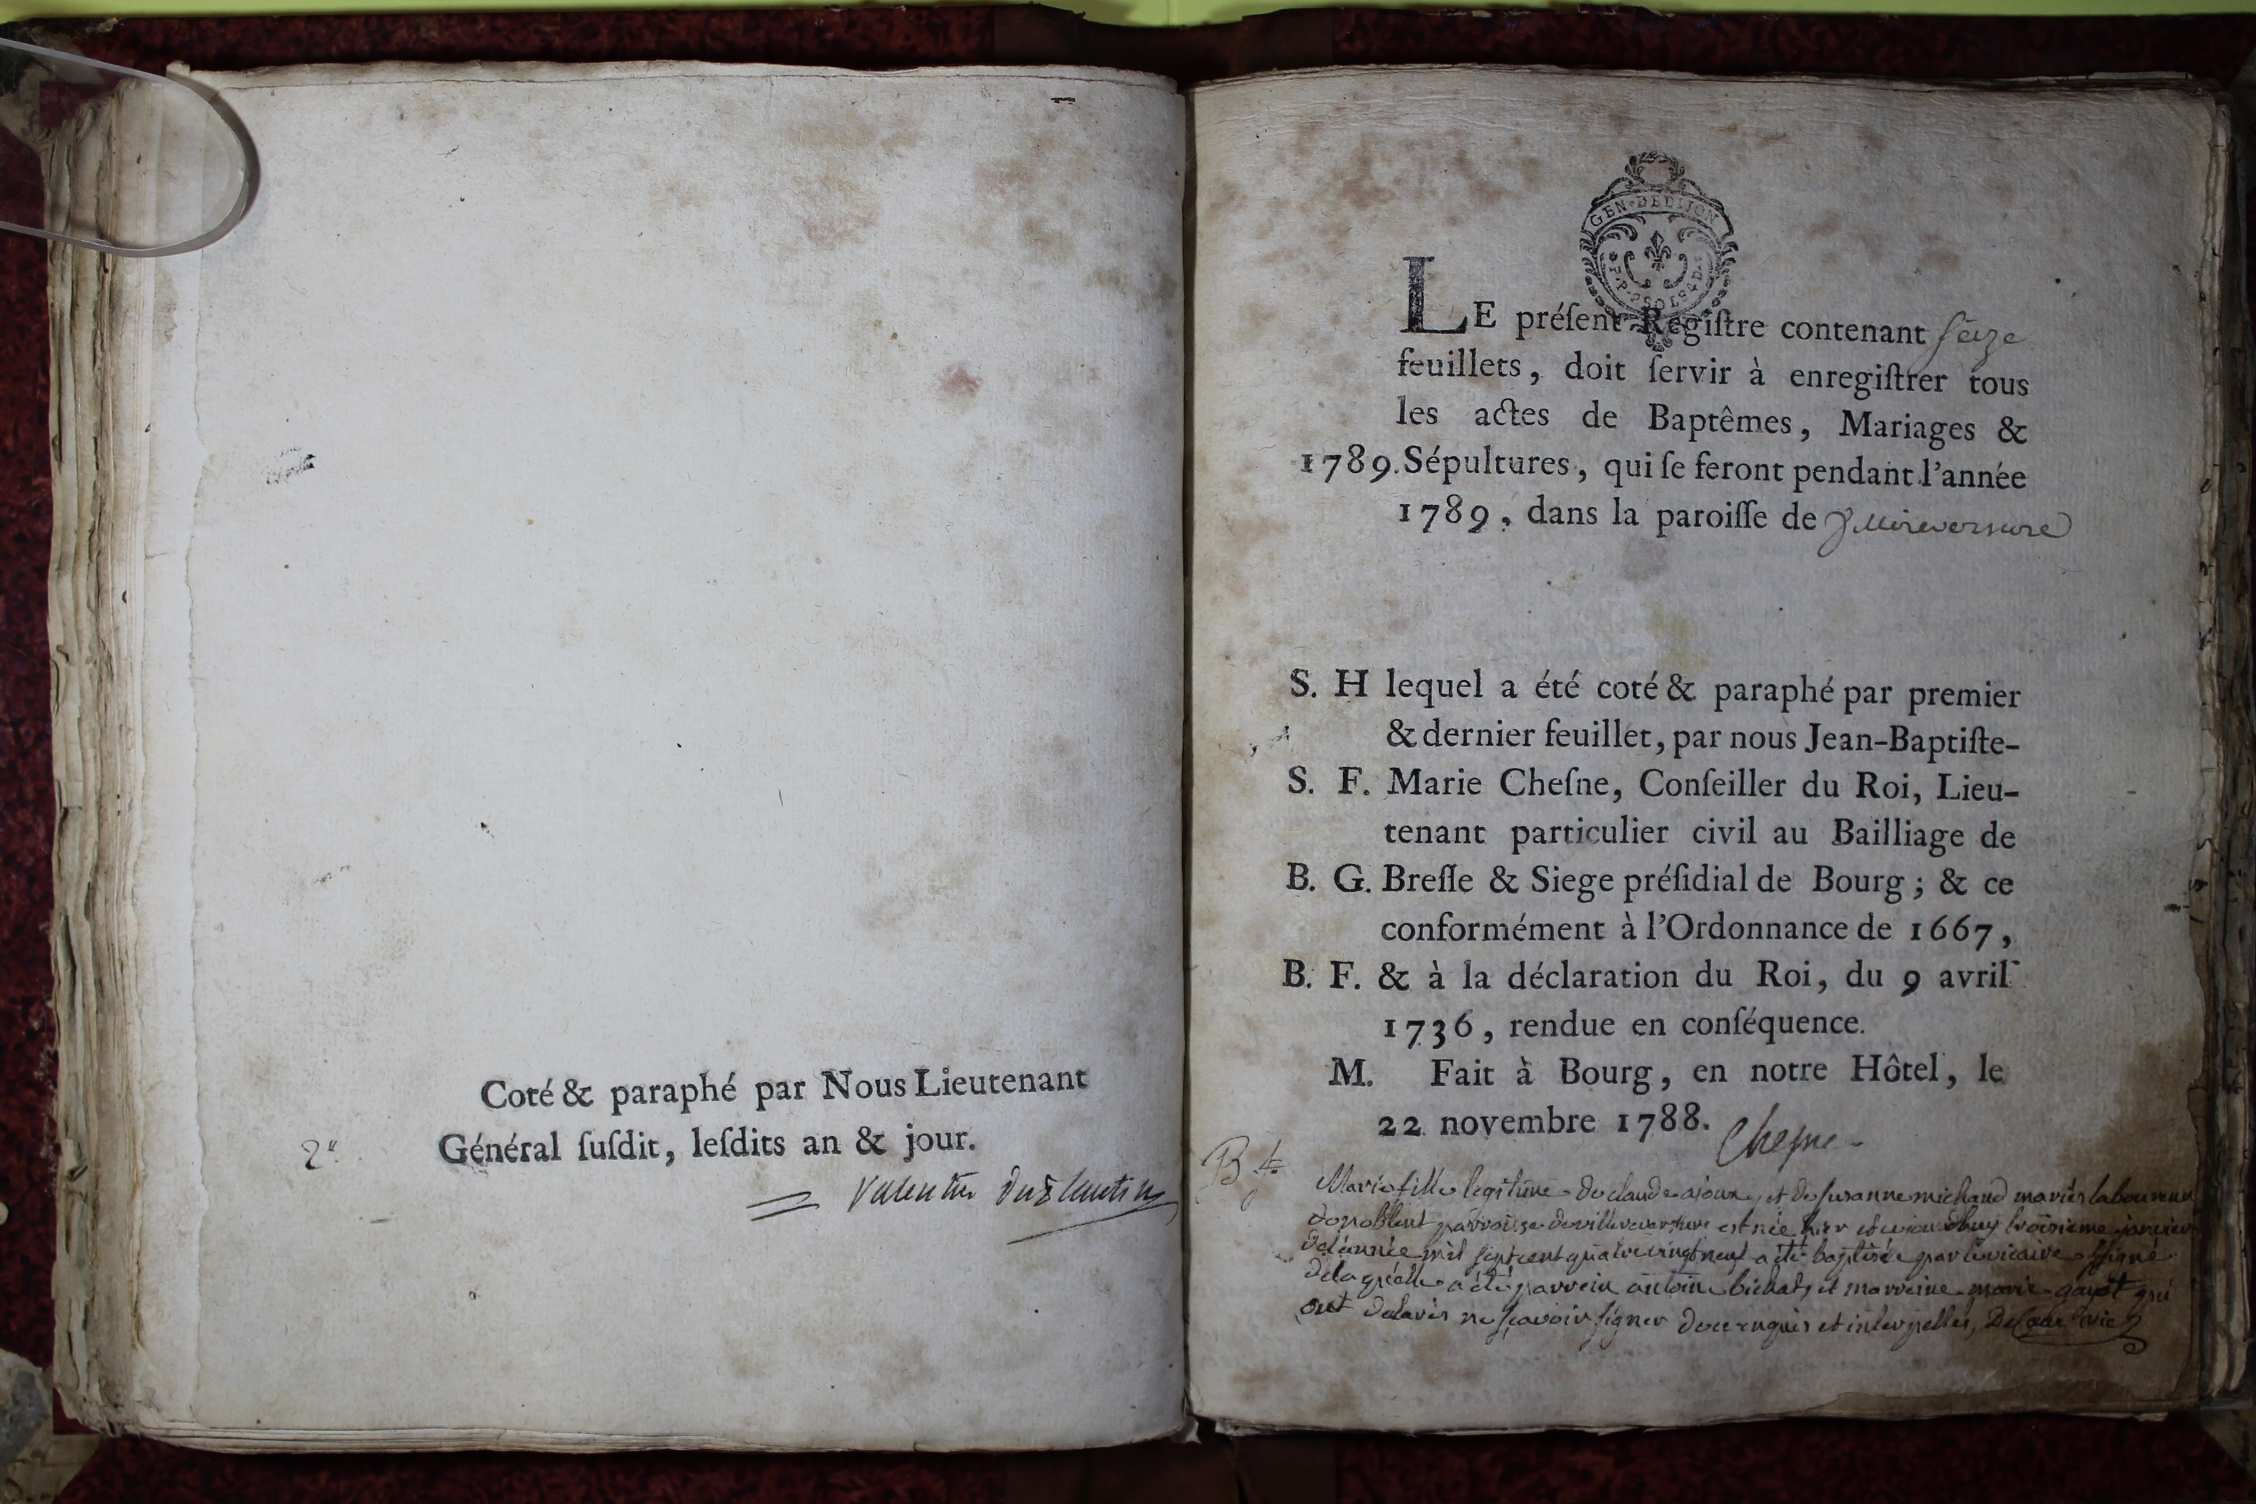 Coté & paraphé par Nous Lieutenant
Général ſuſdit, leſdits an & jour.
GEN·DEDIJON
LE préſent Regiſtre contenant ſeize
feuillets, doit ſervir à enregiſtrer tous
les actes de Baptêmes, Mariages &
1789. Sépultures, qui ſe feront pendant l'année
1789, dans la paroiſſe de
S. H lequel a été coté & paraphé par premier
& dernier feuillet, par nous Jean-Baptiſte-
S. F. Marie Cheſne, Conſeiller du Roi, Lieu-
tenant particulier civil au Bailliage de
B. G. Breſſe & Siege préſidial de Bourg; & ce
conformément à l'Ordonnance de 1667,
B. F. & à la déclaration du Roi, du 9 avril
1736, rendue en conſéquence.
M. Fait à Bourg, en notre Hôtel, le
22 novembre 1788. Cheſne
Marie fille legitime de claude ajoux et de ſuzanne michaud mariés
parroisse de villereversure est née hier et troisieme janvier
de l'année mil sept cent quatre vingt neuf a été baptisée par le vicaire ſſigné
a été parrein antoine bichat et marreine marie gayot qui
ont ne ſçavoir ſigner de ce enquis et interpellés